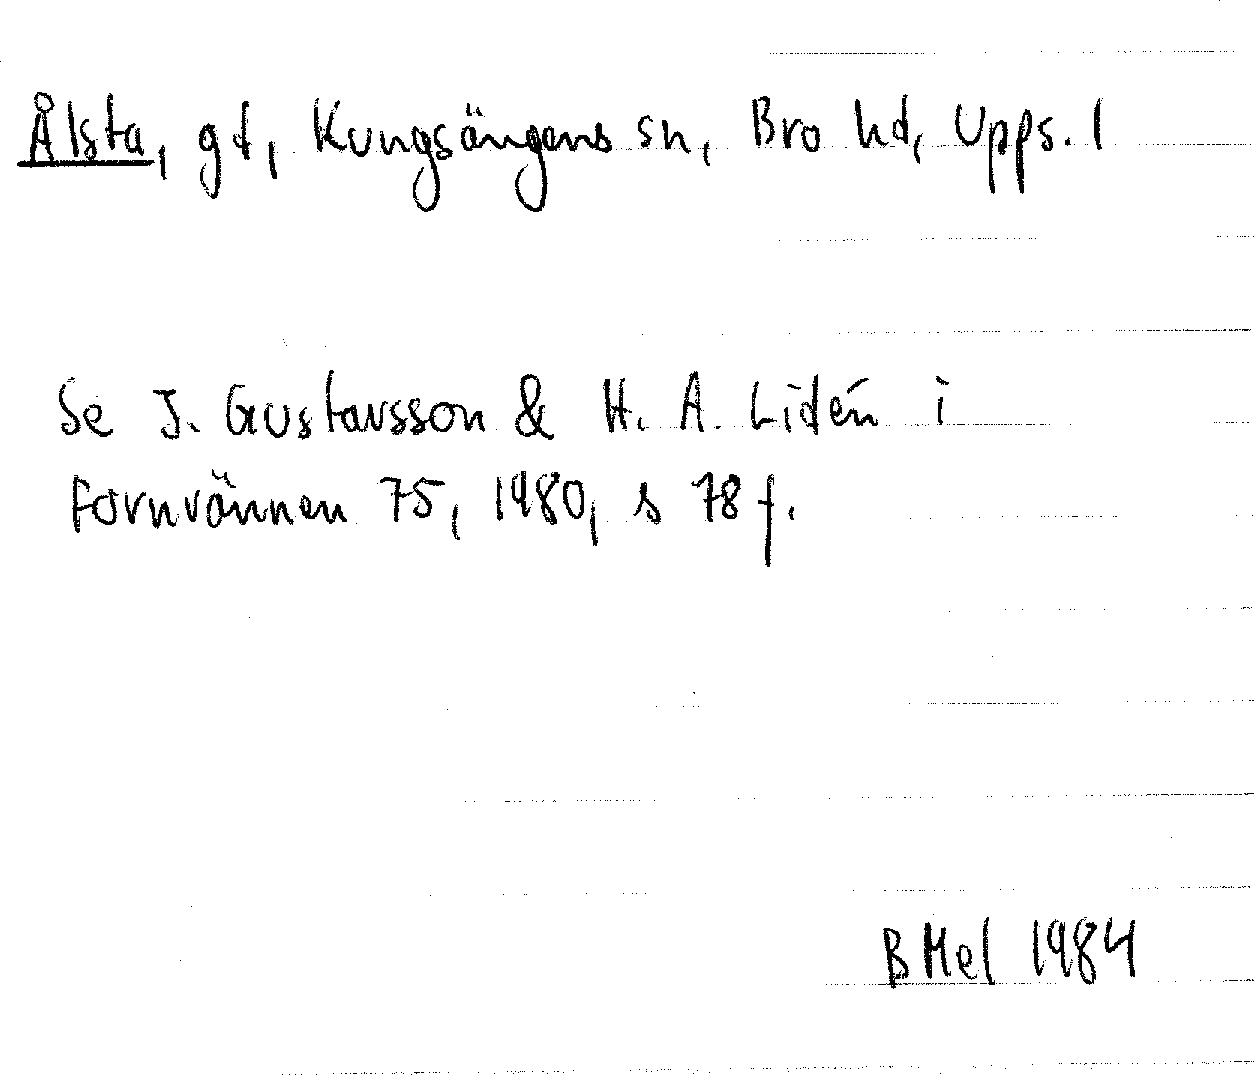 Ålsta, gd, Kungsängens sn, Bro hd, Upps. l
Se J. Gustavsson & H. A. Lidén i
Fornvännen 75, 1980, s 78 f.
B Mel 1984